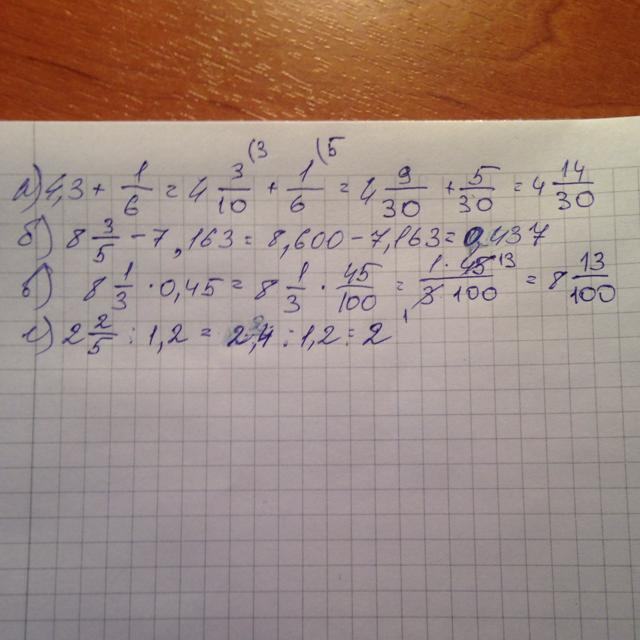 (3 (5
а) 4,3 + 1/6 = 4 3/10 + 1/6 = 4 9/30 + 5/30 = 4 14/30
б) 8 3/5 - 7,163 = 8,600 - 7,163 = 0,437
в) 8 1/3 · 0,45 = 8 1/3 · 45/100 = 1 · 45 13/3 100 = 8 13/100
г) 2 2/5 : 1,2 = 2,4 : 1,2 = 2